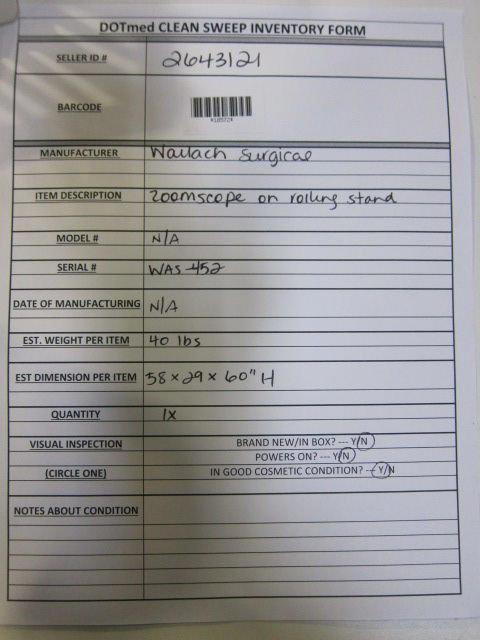 DOTmed CLEAN SWEEP INVENTORY FORM
SELLER ID # 2643121
BARCODE
MANUFACTURER Wallach Surgical
ITEM DESCRIPTION Zoomscope on rolling stand
MODEL # N/A
SERIAL # WAS-452
DATE OF MANUFACTURING N/A
EST. WEIGHT PER ITEM 40 lbs
EST DIMENSION PER ITEM 58 x 29 x 60" H
QUANTITY 1X
VISUAL INSPECTION BRAND NEW/IN BOX? --- Y/N
POWERS ON? --- Y/N
(CIRCLE ONE) IN GOOD COSMETIC CONDITION? --- Y/N
NOTES ABOUT CONDITION